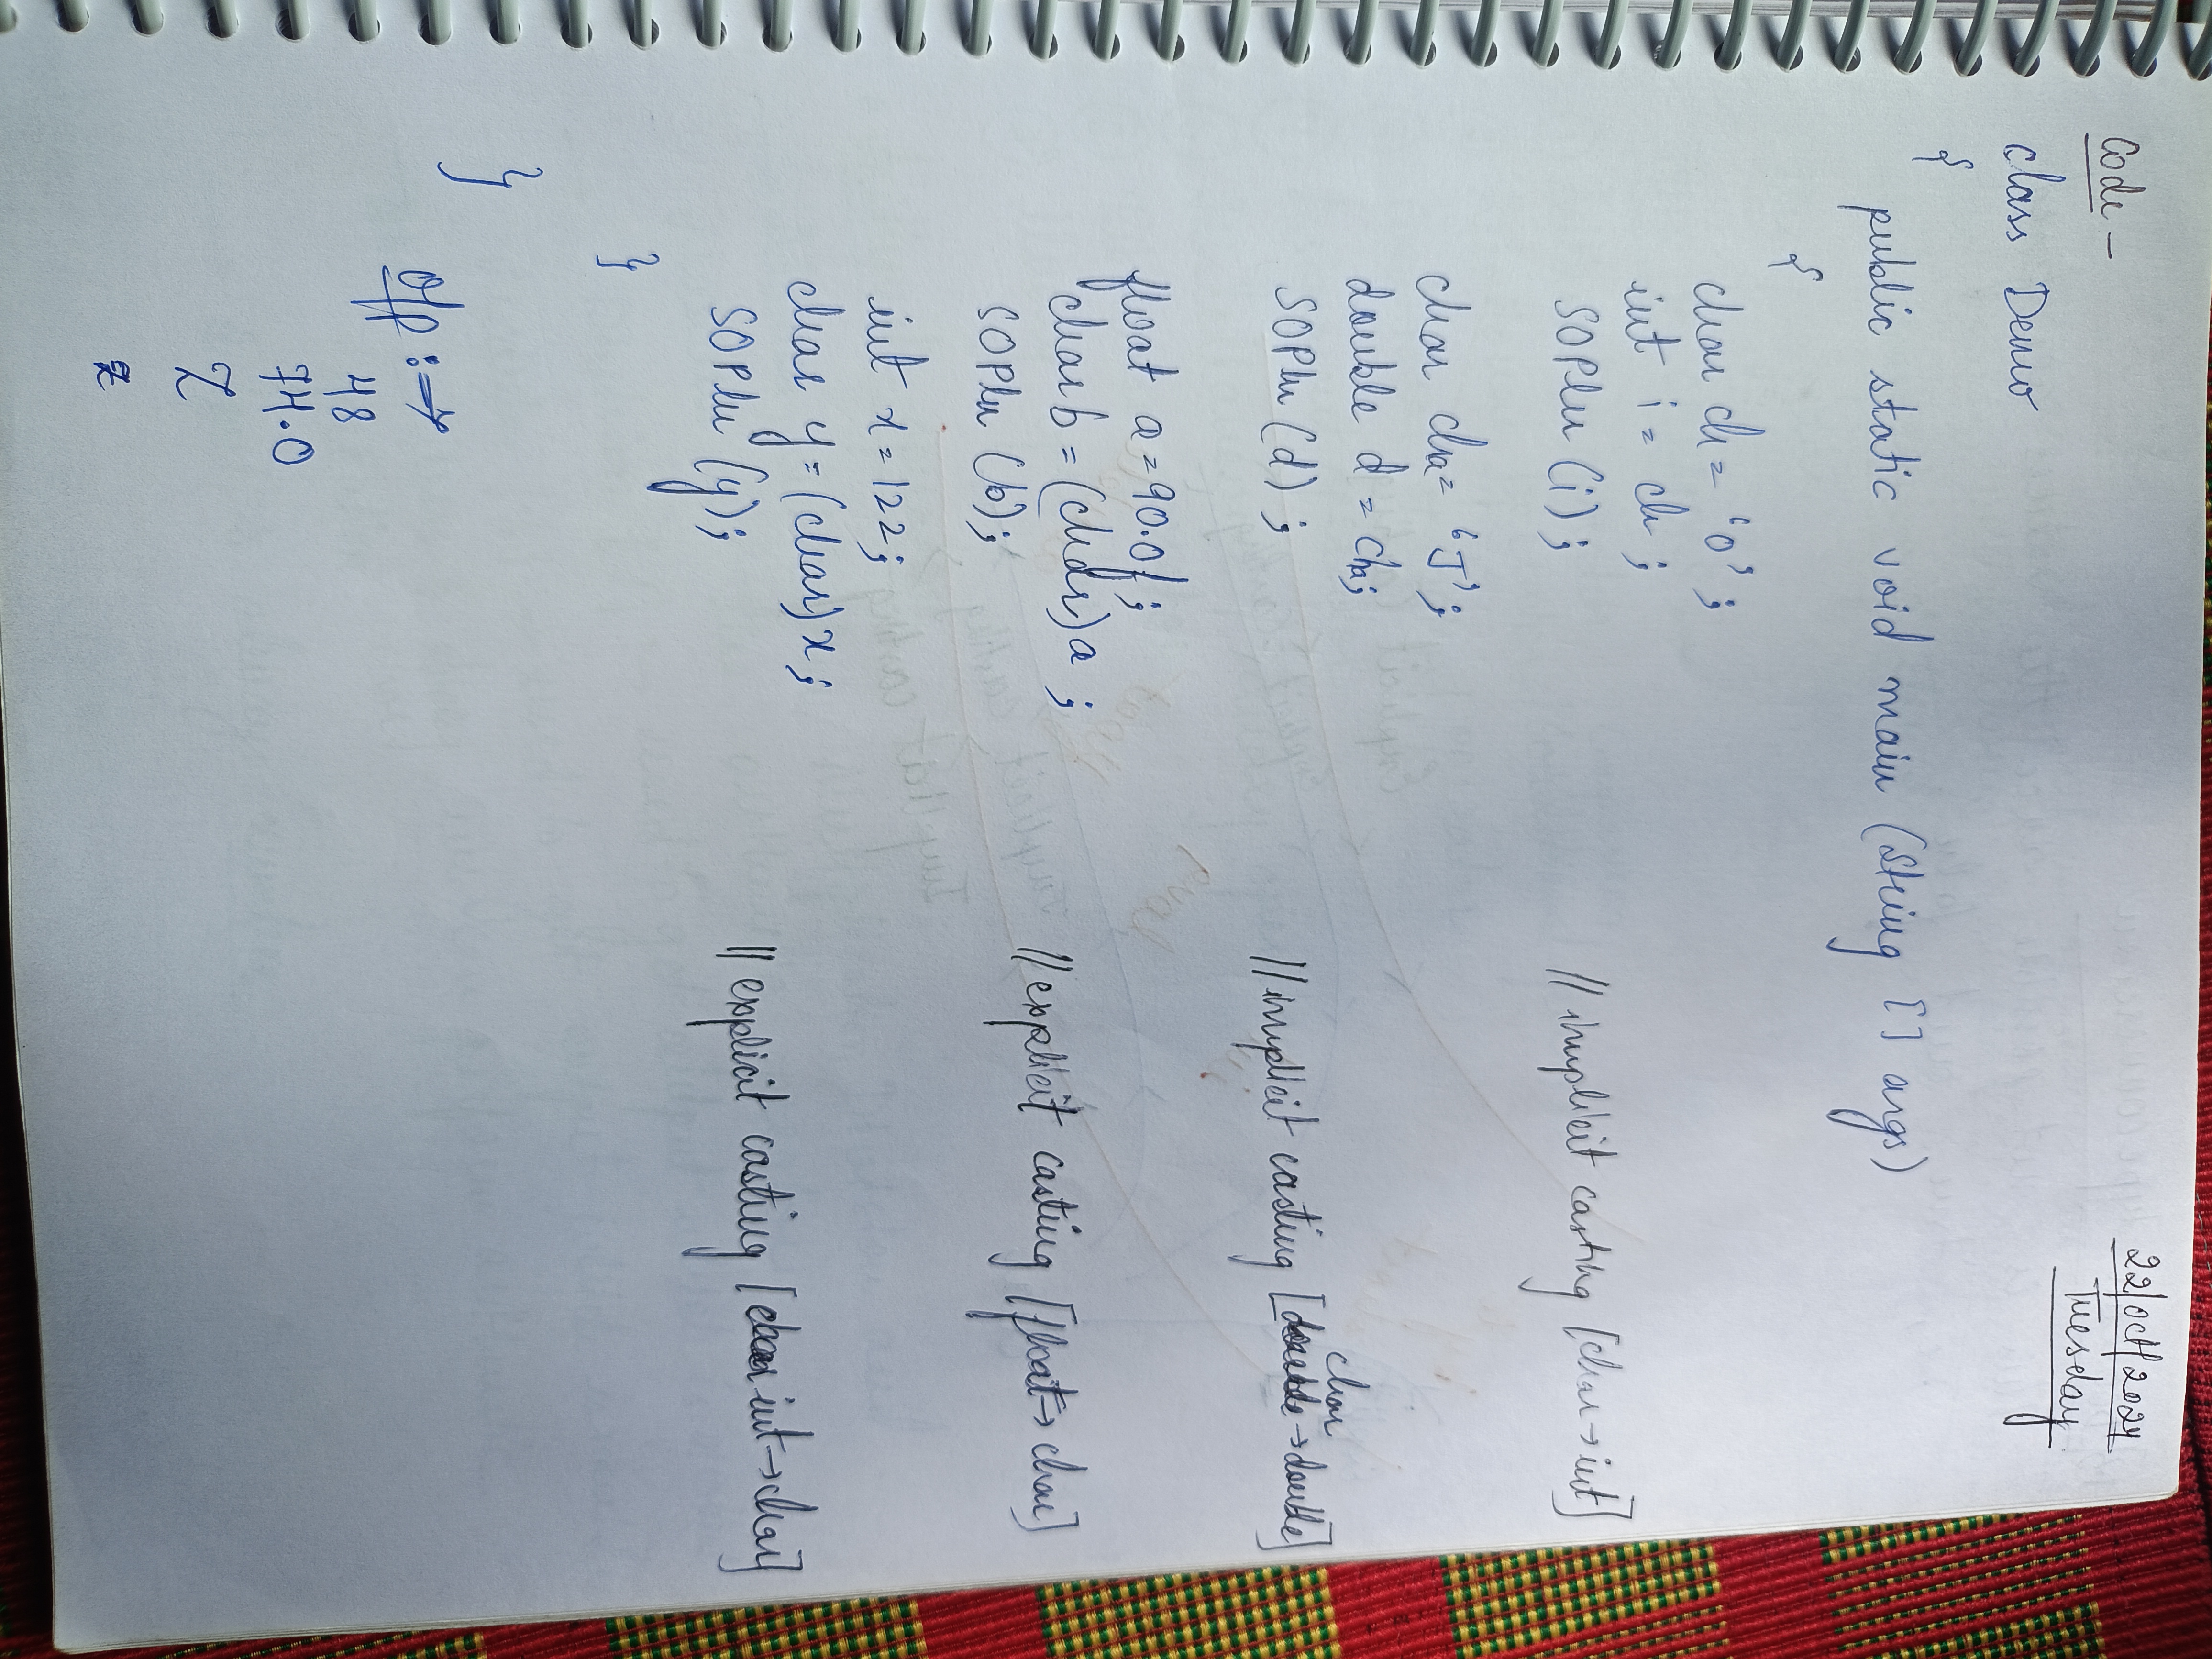 22/Oct/2024
Tuesday
Code -
class Demo
{
public static void main (String [] args)
{
char ch = '0';
int i = ch;
SOPln (i); // implicit casting [char → int]
char cha = 'J';
double d = cha;
SOPln (d); // implicit casting [char → double]
float a = 90.0f;
char b = (char) a;
SOPln (b); // explicit casting [float → char]
int x = 122;
char y = (char) x;
SOPln (y); // explicit casting [int → char]
}
}
O/p : →
48
74.0
Z
z